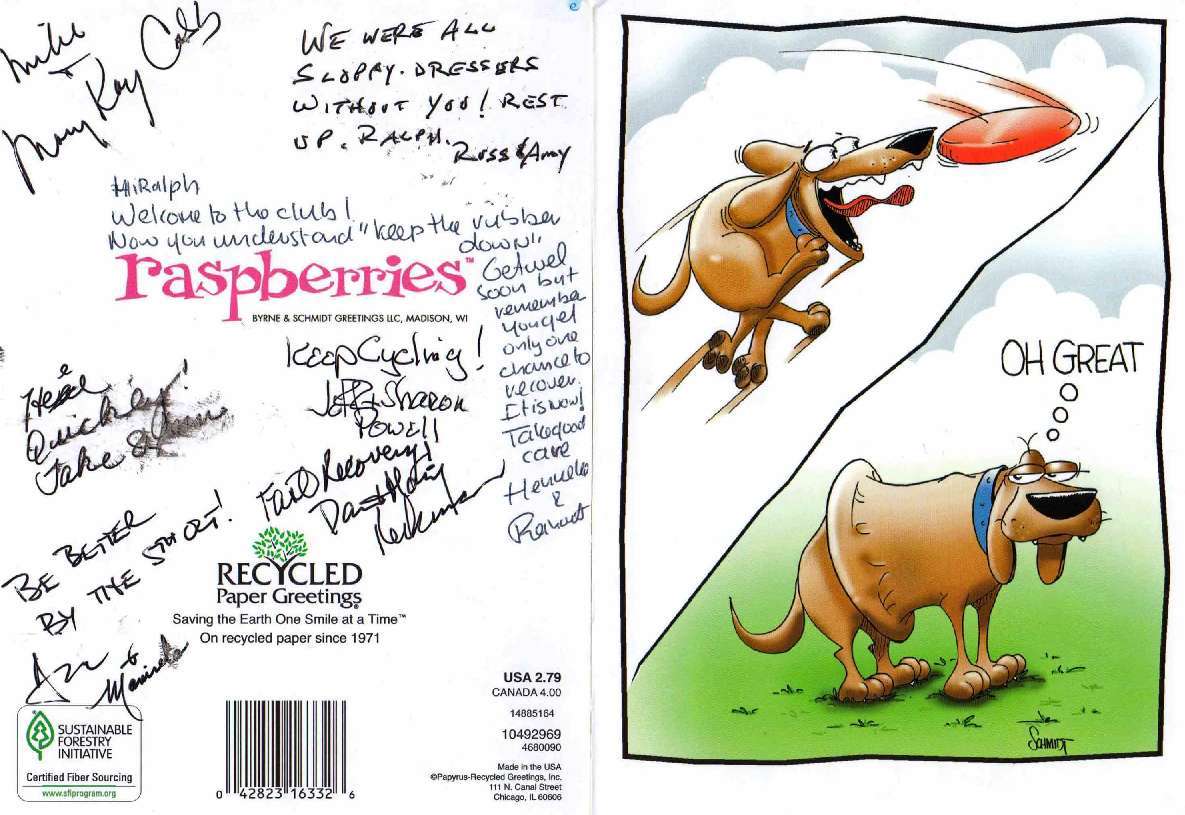 Mike
+
Mary Kay Cobb
WE WERE ALL
SLOPPY DRESSERS
WITHOUT YOU! REST
UP, RALPH.
Russ & Amy
Hi Ralph
Welcome to the club!
Now you understand "keep the rubber
down"
Get wel
soon but
remember
you get
only one
chance to
recover.
It is now!
Take good
care
&
raspberries™
BYRNE & SCHMIDT GREETINGS LLC, MADISON, WI
Keep Cycling!
Jeff & Sharon
Powell
Heal
Quickly!
Take
Fast Recovery!
BE BETTER
BY THE
RECYCLED
Paper Greetings®
Saving the Earth One Smile at a Time™
On recycled paper since 1971
SUSTAINABLE
FORESTRY
INITIATIVE
Certified Fiber Sourcing
www.sfiprogram.org
0 42823 16332 6
USA 2.79
CANADA 4.00
14885164
10492969
4680090
Made in the USA
©Papyrus-Recycled Greetings, Inc.
111 N. Canal Street
Chicago, IL 60606
OH GREAT
SCHMIDT